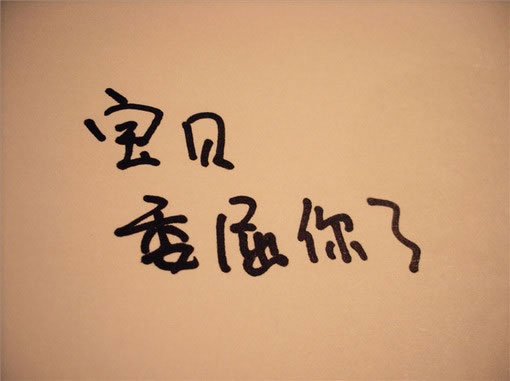 宝贝
委屈你了